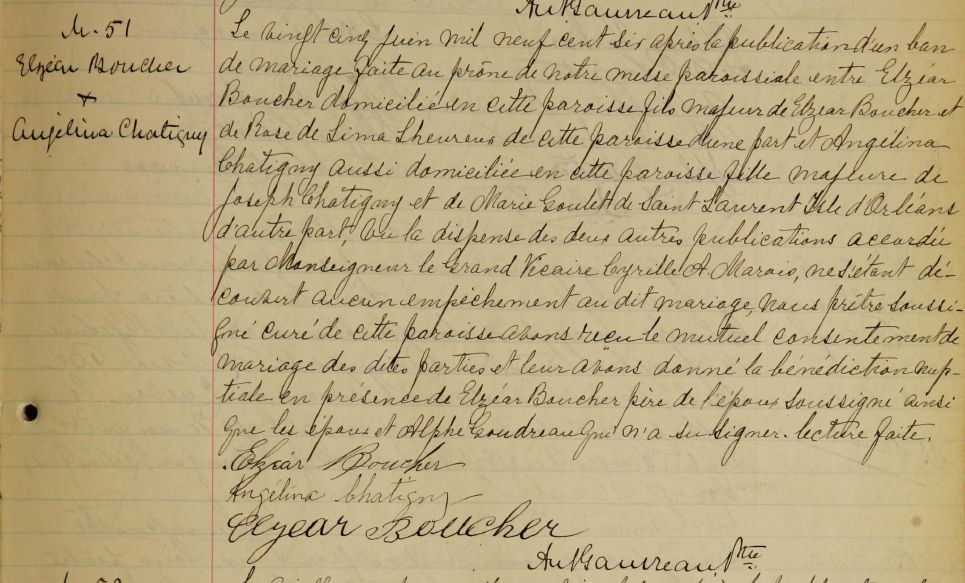 M. 51
Elzéar Boucher
+
Angélina Chatigny
Ant Gauvreau Ptre
Le vingt cinq Juin mil neuf cent six après la publication d'un ban
de mariage faite au prône de notre messe paroissiale entre Elzéar
Boucher domicilié en cette paroisse fils majeur de Elzéar Boucher et
de Rose de Lima Lheureux de cette paroisse d'une part et Angélina
Chatigny aussi domiciliée en cette paroisse fille majeure de
Joseph Chatigny et de Marie Goulet de Saint Laurent Isle d'Orléans
d'autre part, Vu la dispense des deux autres publications accordée
par Monseigneur le Grand Vicaire Cyrille A Marois, ne s'étant dé-
couvert aucun empêchement au dit mariage, nous prêtre soussi-
gné curé de cette paroisse avons reçu le mutuel consentement de
mariage des dites parties et leur avons donné la bénédiction nup-
tiale en présence de Elzéar Boucher père de l'époux soussigné ainsi
que les époux et Alphé Goudreau qui n'a su signer. lecture faite.
Elzéar Boucher
Angélina Chatigny
Elzear Boucher
Ant Gauvreau Ptre